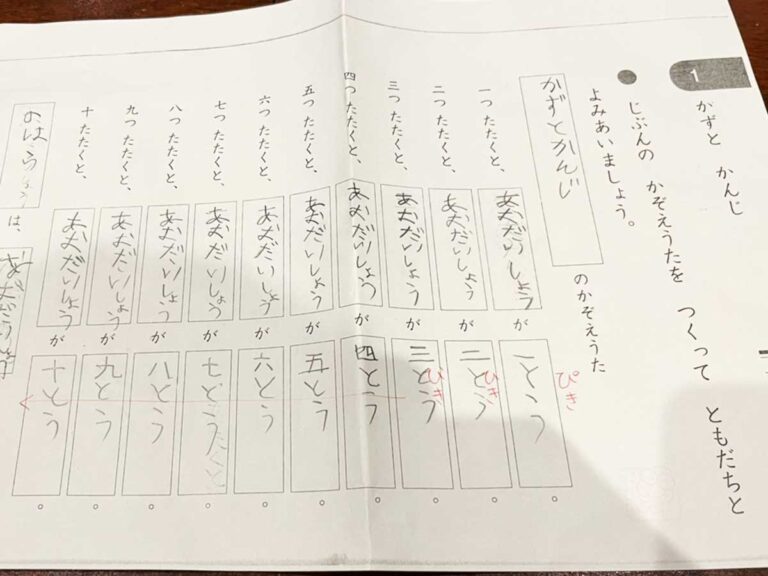 1
かずと かんじ
● じぶんの かぞえうたを つくって ともだちと
よみあいましょう。
かずとかんじ のかぞえうた
一つ たたくと、 あおだいしょう が 一とう。
ぴき
二つ たたくと、 あおだいしょう が 二とう。
ひき
三つ たたくと、 あおだいしょう が 三とう。
びき
四つ たたくと、 あおだいしょう が 四とう。
五つ たたくと、 あおだいしょう が 五とう。
六つ たたくと、 あおだいしょう が 六とう。
七つ たたくと、 あおだいしょう が 七とう。
八つ たたくと、 あおだいしょう が 八とう。
九つ たたくと、 あおだいしょう が 九とう。
十 たたくと、 あおだいしょう が 十とう。
は、 あおだいしょう